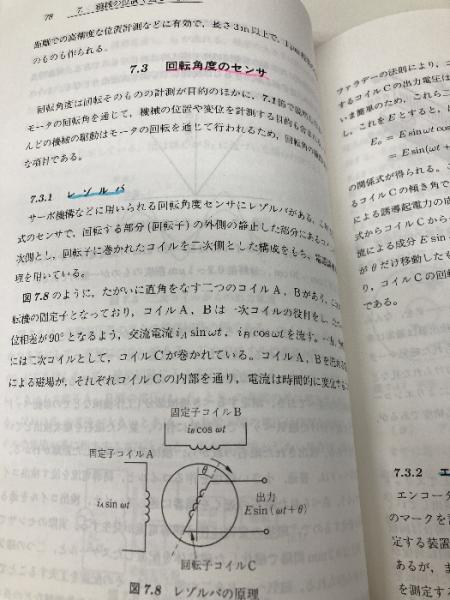 78　7.　機械の位置
距離での高精度な位置計測などに有効で，長さ3m以上で，
のものも作られる。
7.3　回転角度のセンサ
回転角度は回転そのものの計測が目的のほかに，7.1節で説明
モータの回転角を通じて，機械の位置や変位を計測する目的も含まれ
んどの機械の駆動はモータの回転を通じて行われるため，回転角の
な項目である。
7.3.1　レゾルバ
サーボ機構などに用いられる回転角度センサにレゾルバがある。
式のセンサで，回転する部分(回転子)の外側の静止した部分にある
次側とし，回転子に巻かれたコイルを二次側とした構成をもち，電磁誘導
理を用いている。
図7.8のように，たがいに直角をなす二つのコイルA，Bがあり，
転機の固定子となっており，コイルA，Bは一次コイルの役目をし，
位相差が90°となるよう，交流電流 iA sin ωt，iB cos ωtを流す。一方，
には二次コイルとして，コイルCが巻かれている。コイルA，Bを流れる
による磁場が，それぞれコイルCの内部を通り，電流は時間的に変化する
固定子コイルB
iB cos ωt
固定子コイルA
iA sin ωt
θ
出力
E sin (ωt+θ)
回転子コイルC
図7.8　レゾルバの原理
ファラデーの法則により，
するコイルCの出力電圧は
いま簡単のため，これら二
し，これをEとすると，
Eo = E sin ωt cos
= E sin(ωt +
の関係式が得られる。こ
るコイルCの傾き角で
による誘導起電力の成
式からコイルCから
流による成分 E sin
がθだけ移動したも
り，コイルCの回転
である。
7.3.2　エ
エンコー
のマークを
定する装置
あるが，
を測定す